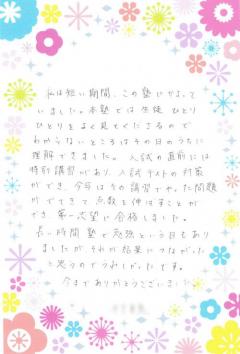 私は短い期間、この塾にかよって
いました。本塾では生徒 ひとり
ひとりをよく見てくださるので
わからないところはその日のうちに
理解できました。 入試の直前には
特別講習があり、入試テストの対策
ができ、今年はその講習でやった問題
がでてきて点数を伸ばすことが
でき 第一志望に合格しました。
長い時間塾で勉強という日もあり
ましたが それが結果につながった
と思うのでうれしかったです。
今までありがとうございました